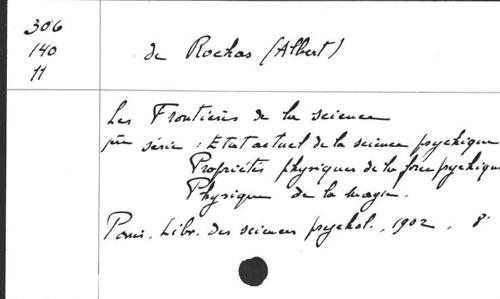 306
140
11
de Rochas (Albert)
Les Frontières de la science
1ère série : Etat actuel de la science psychique
Propriétés physiques de la force psychique
Physique de la magie.
Paris. Libr. des sciences psychol., 1902, 8°